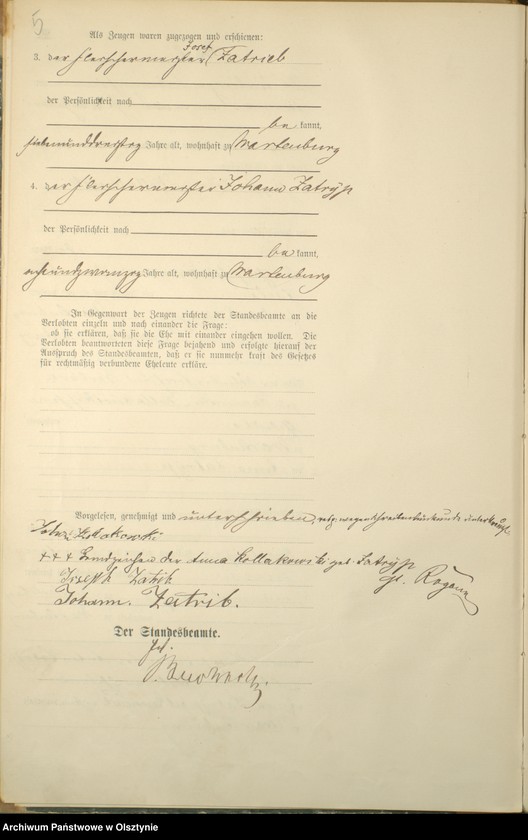 5
Als Zeugen waren zugezogen und erschienen:
Josef
3. der Fleischermeister Zatrieb
der Persönlichkeit nach
be kannt,
siebenunddreißig Jahre alt, wohnhaft zu Wartenburg
4. der Fleischermeister Johann Zatryp
der Persönlichkeit nach
be kannt,
achtundzwanzig Jahre alt, wohnhaft zu Wartenburg
In Gegenwart der Zeugen richtete der Standesbeamte an die
Verlobten einzeln und nach einander die Frage:
ob sie erklären, daß sie die Ehe mit einander eingehen wollen. Die
Verlobten beantworteten diese Frage bejahend und erfolgte hierauf der
Ausspruch des Standesbeamten, daß er sie nunmehr kraft des Gesetzes
für rechtmäßig verbundene Eheleute erkläre.
Vorgelesen, genehmigt und unterschrieben, wegen Schreibensunkunde
+++ Handzeichen der Anna Kollakowski geb. Zatryp
Johann Zatrib.
Der Standesbeamte.
Archiwum Państwowe w Olsztynie